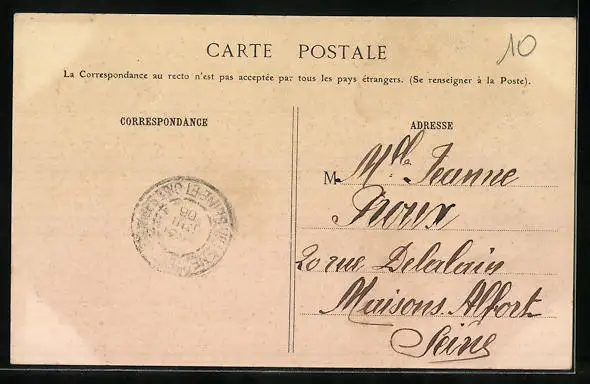 10
CARTE POSTALE
La Correspondance au recto n'est pas acceptée par tous les pays étrangers. (Se renseigner à la Poste).
CORRESPONDANCE
ADRESSE
M Mlle Jeanne
Roux
20 rue Delalain
Maisons. Alfort
Seine